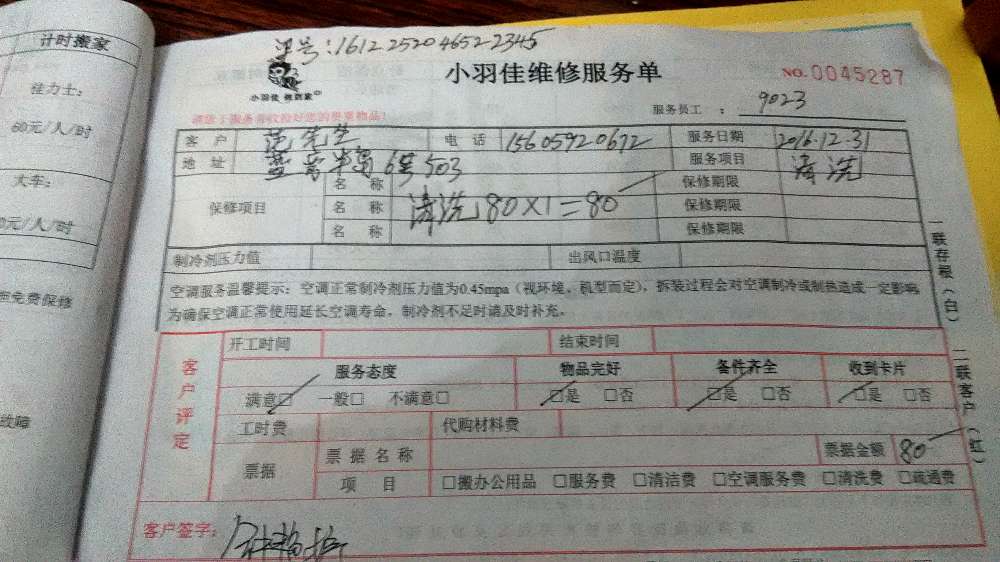 计时搬家
证号:1612252046522345
小羽佳维修服务单
NO.0045287
桂力士:
小羽佳 做到家
服务员工: 9023
请在工服务前收拾好您的贵重物品!
60元/人/时
客户 范先生 电话 15605920672 服务日期 2016.12.31
地址 6号503 服务项目 清洗
大车:
保修项目
名称 保修期限
名称 清洗80X1=80 保修期限
名称 保修期限
0元/人/时
制冷剂压力值 出风口温度
空调服务温馨提示:空调正常制冷剂压力值为0.45mpa(视环境、机型而定),拆装过程会对空调制冷或制热造成一定影响
为确保空调正常使用延长空调寿命,制冷剂不足时请及时补充。
免费保修
一联存根(白)
二联客户(红)
客户评定
开工时间 结束时间
服务态度 物品完好 备件齐全 收到卡片
满意□ 一般□ 不满意□ □是 □否 □是 □否 □是 □否
故障
工时费 代购材料费
票据 票据名称 票据金额 80
项目 □搬办公用品 □服务费 □清洁费 □空调服务费 □清洗费 □疏通费
客户签字: